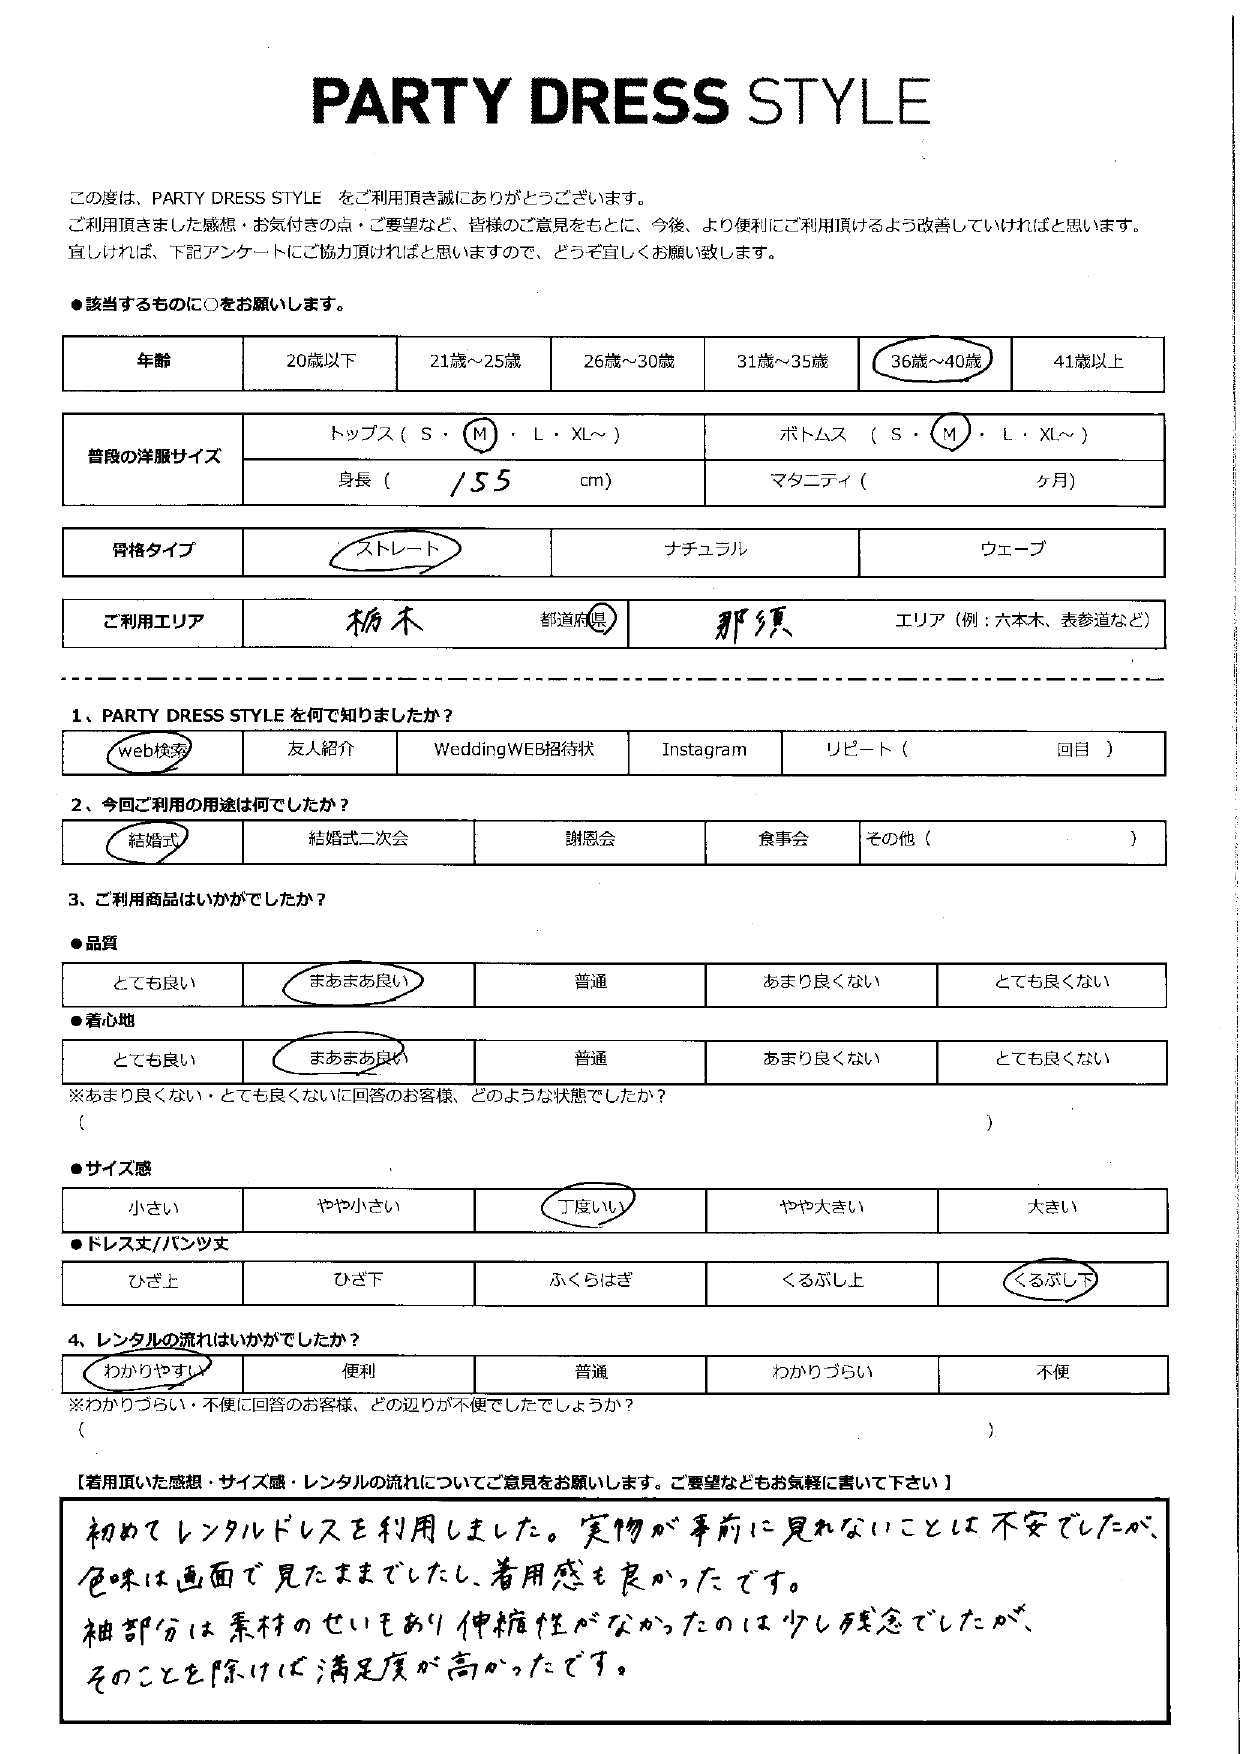 PARTY DRESS STYLE
この度は、PARTY DRESS STYLE をご利用頂き誠にありがとうございます。
ご利用頂きました感想・お気付きの点・ご要望など、皆様のご意見をもとに、今後、より便利にご利用頂けるよう改善していければと思います。
宜しければ、下記アンケートにご協力頂ければと思いますので、どうぞ宜しくお願い致します。
●該当するものに○をお願いします。
年齢 20歳以下 21歳～25歳 26歳～30歳 31歳～35歳 36歳～40歳 41歳以上
普段の洋服サイズ トップス ( S ・ M ・ L ・ XL～ ) ボトムス ( S ・ M ・ L ・ XL～ )
身長 ( 155 cm) マタニティ ( ヶ月)
骨格タイプ ストレート ナチュラル ウェーブ
ご利用エリア 栃木 都道府県 那須 エリア（例：六本木、表参道など）
1、PARTY DRESS STYLE を何で知りましたか？
web検索 友人紹介 WeddingWEB招待状 Instagram リピート ( 回目 )
2、今回ご利用の用途は何でしたか？
結婚式 結婚式二次会 謝恩会 食事会 その他 ( )
3、ご利用商品はいかがでしたか？
●品質
とても良い まあまあ良い 普通 あまり良くない とても良くない
●着心地
とても良い まあまあ良い 普通 あまり良くない とても良くない
※あまり良くない・とても良くないに回答のお客様、どのような状態でしたか？
( )
●サイズ感
小さい やや小さい 丁度いい やや大きい 大きい
●ドレス丈/パンツ丈
ひざ上 ひざ下 ふくらはぎ くるぶし上 くるぶし下
4、レンタルの流れはいかがでしたか？
わかりやすい 便利 普通 わかりづらい 不便
※わかりづらい・不便に回答のお客様、どの辺りが不便でしたでしょうか？
( )
【着用頂いた感想・サイズ感・レンタルの流れについてご意見をお願いします。ご要望などもお気軽に書いて下さい】
初めてレンタルドレスを利用しました。実物が事前に見れないことは不安でしたが、
色味は画面で見たままでしたし、着用感も良かったです。
袖部分は素材のせいもあり伸縮性がなかったのは少し残念でしたが、
そのことを除けば満足度が高かったです。